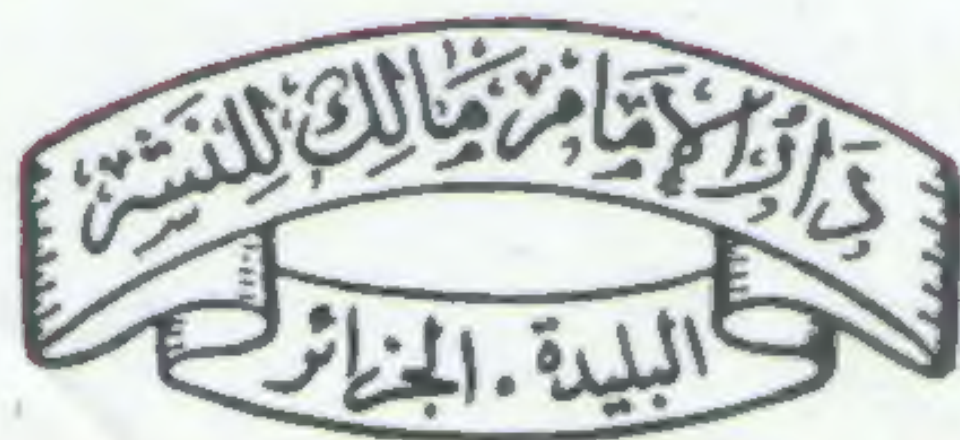 دار الإمام مالك للنشر
البليدة . الجزائر